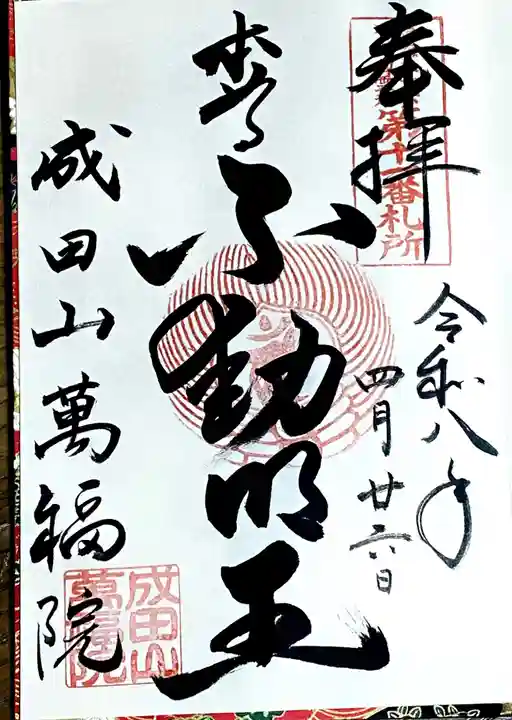 奉拝
第十一番札所
令和八年
四月廿六日
本尊
不動明王
成田山萬福院
成田山
萬福院